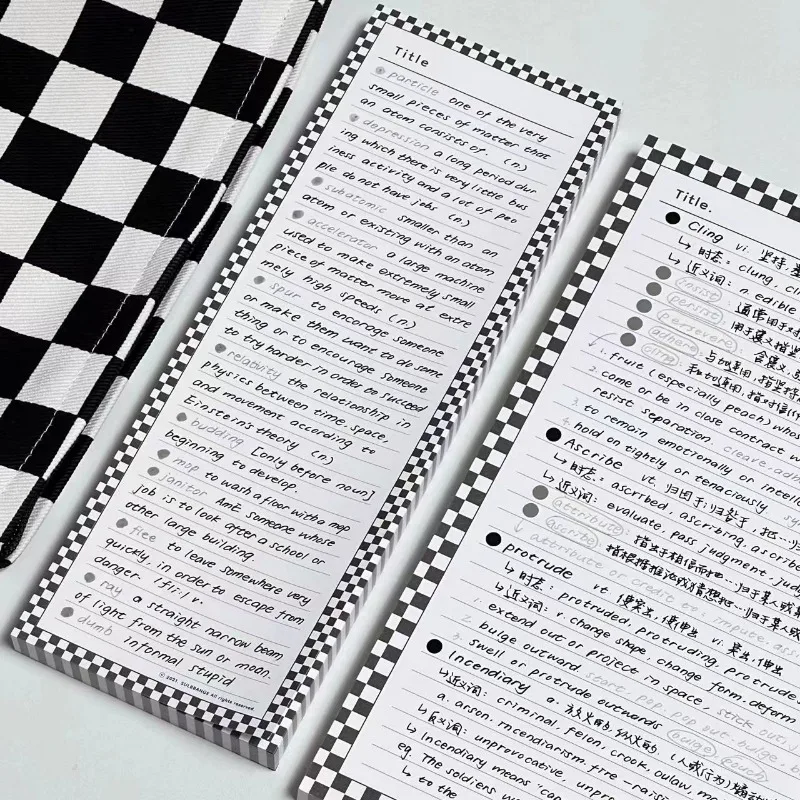 Title
particle one of the very
small pieces of matter that
an atom consists of. (n.)
depression a long period dur
ing which there is very little bus
iness activity and a lot of peo
ple do not have jobs (n.)
subatomic smaller than an
atom or existing with an atom
accelerator a large machine
used to make extremely small
piece of matter move at extre
mely high speeds (n.)
spur to encorage someone
or make them want to do some
thing or to encourage someone
to try harder in order to succeed
relativity the relationship in
physics between time, space,
and movement according to
Einstein's theory (n.)
budding [only before noun]
beginning to develop.
mop to wash a floor with a mop
janitor AmE someone whose
job is to look after a school or
other large building.
flee to leave somewhere very
quickly, in order to escape from
danger. /fliː/ v.
ray a straight narrow beam
of light from the sun or moon.
dumb informal stupid
© 2021. SULBRANGE All rights reserved.
Title.
Cling vi. 坚持,
↳ 时态: clung, cli
↳ 近义词: n. edible
insist 通常用于对
persist
persevere 用于褒义指坚
adhere 含褒义,
cling 与to连用, 指坚持
和to连用, 指对
1. fruit (especially peach) whos
2. come or be in close contract w
resist separation.
3. to remain emotionally or intelle
cleave. adh
4. hold on tightly or tenaciously
Ascribe vt. 归因于; 归咎于, 把…归
↳ 时态: ascribed, ascribing, ascribe
↳ 近义词: evaluate, pass judgment, judg
attribute 指出于相信而把…归于某人或某
ascribe 指根据推论或猜想把…归于某人或
↓ attribute or credit to: impute, assi
protrude vt. 使突出, 使伸出 vi. 突出, 伸出
↳ 时态: protruded, protruding, protrude
↳ 近义词: v. change shape, change form, deform
1. extend out or project in space, stick out,
2. bulge outward start, pop, pop out, bulge, b
3. swell or protrude outwards (bulge) (pouch)
Incendiary a. 放火的, 纵火的, (人或行为)煽动
↳ 近义词: criminal, felon, crook, outlaw, ma
a. arson, incendiarism, fire-raisi
↳ 反义词: unprovocative, unpro
↳ Incendiary means "can
eg. The soldiers w
↳ to the